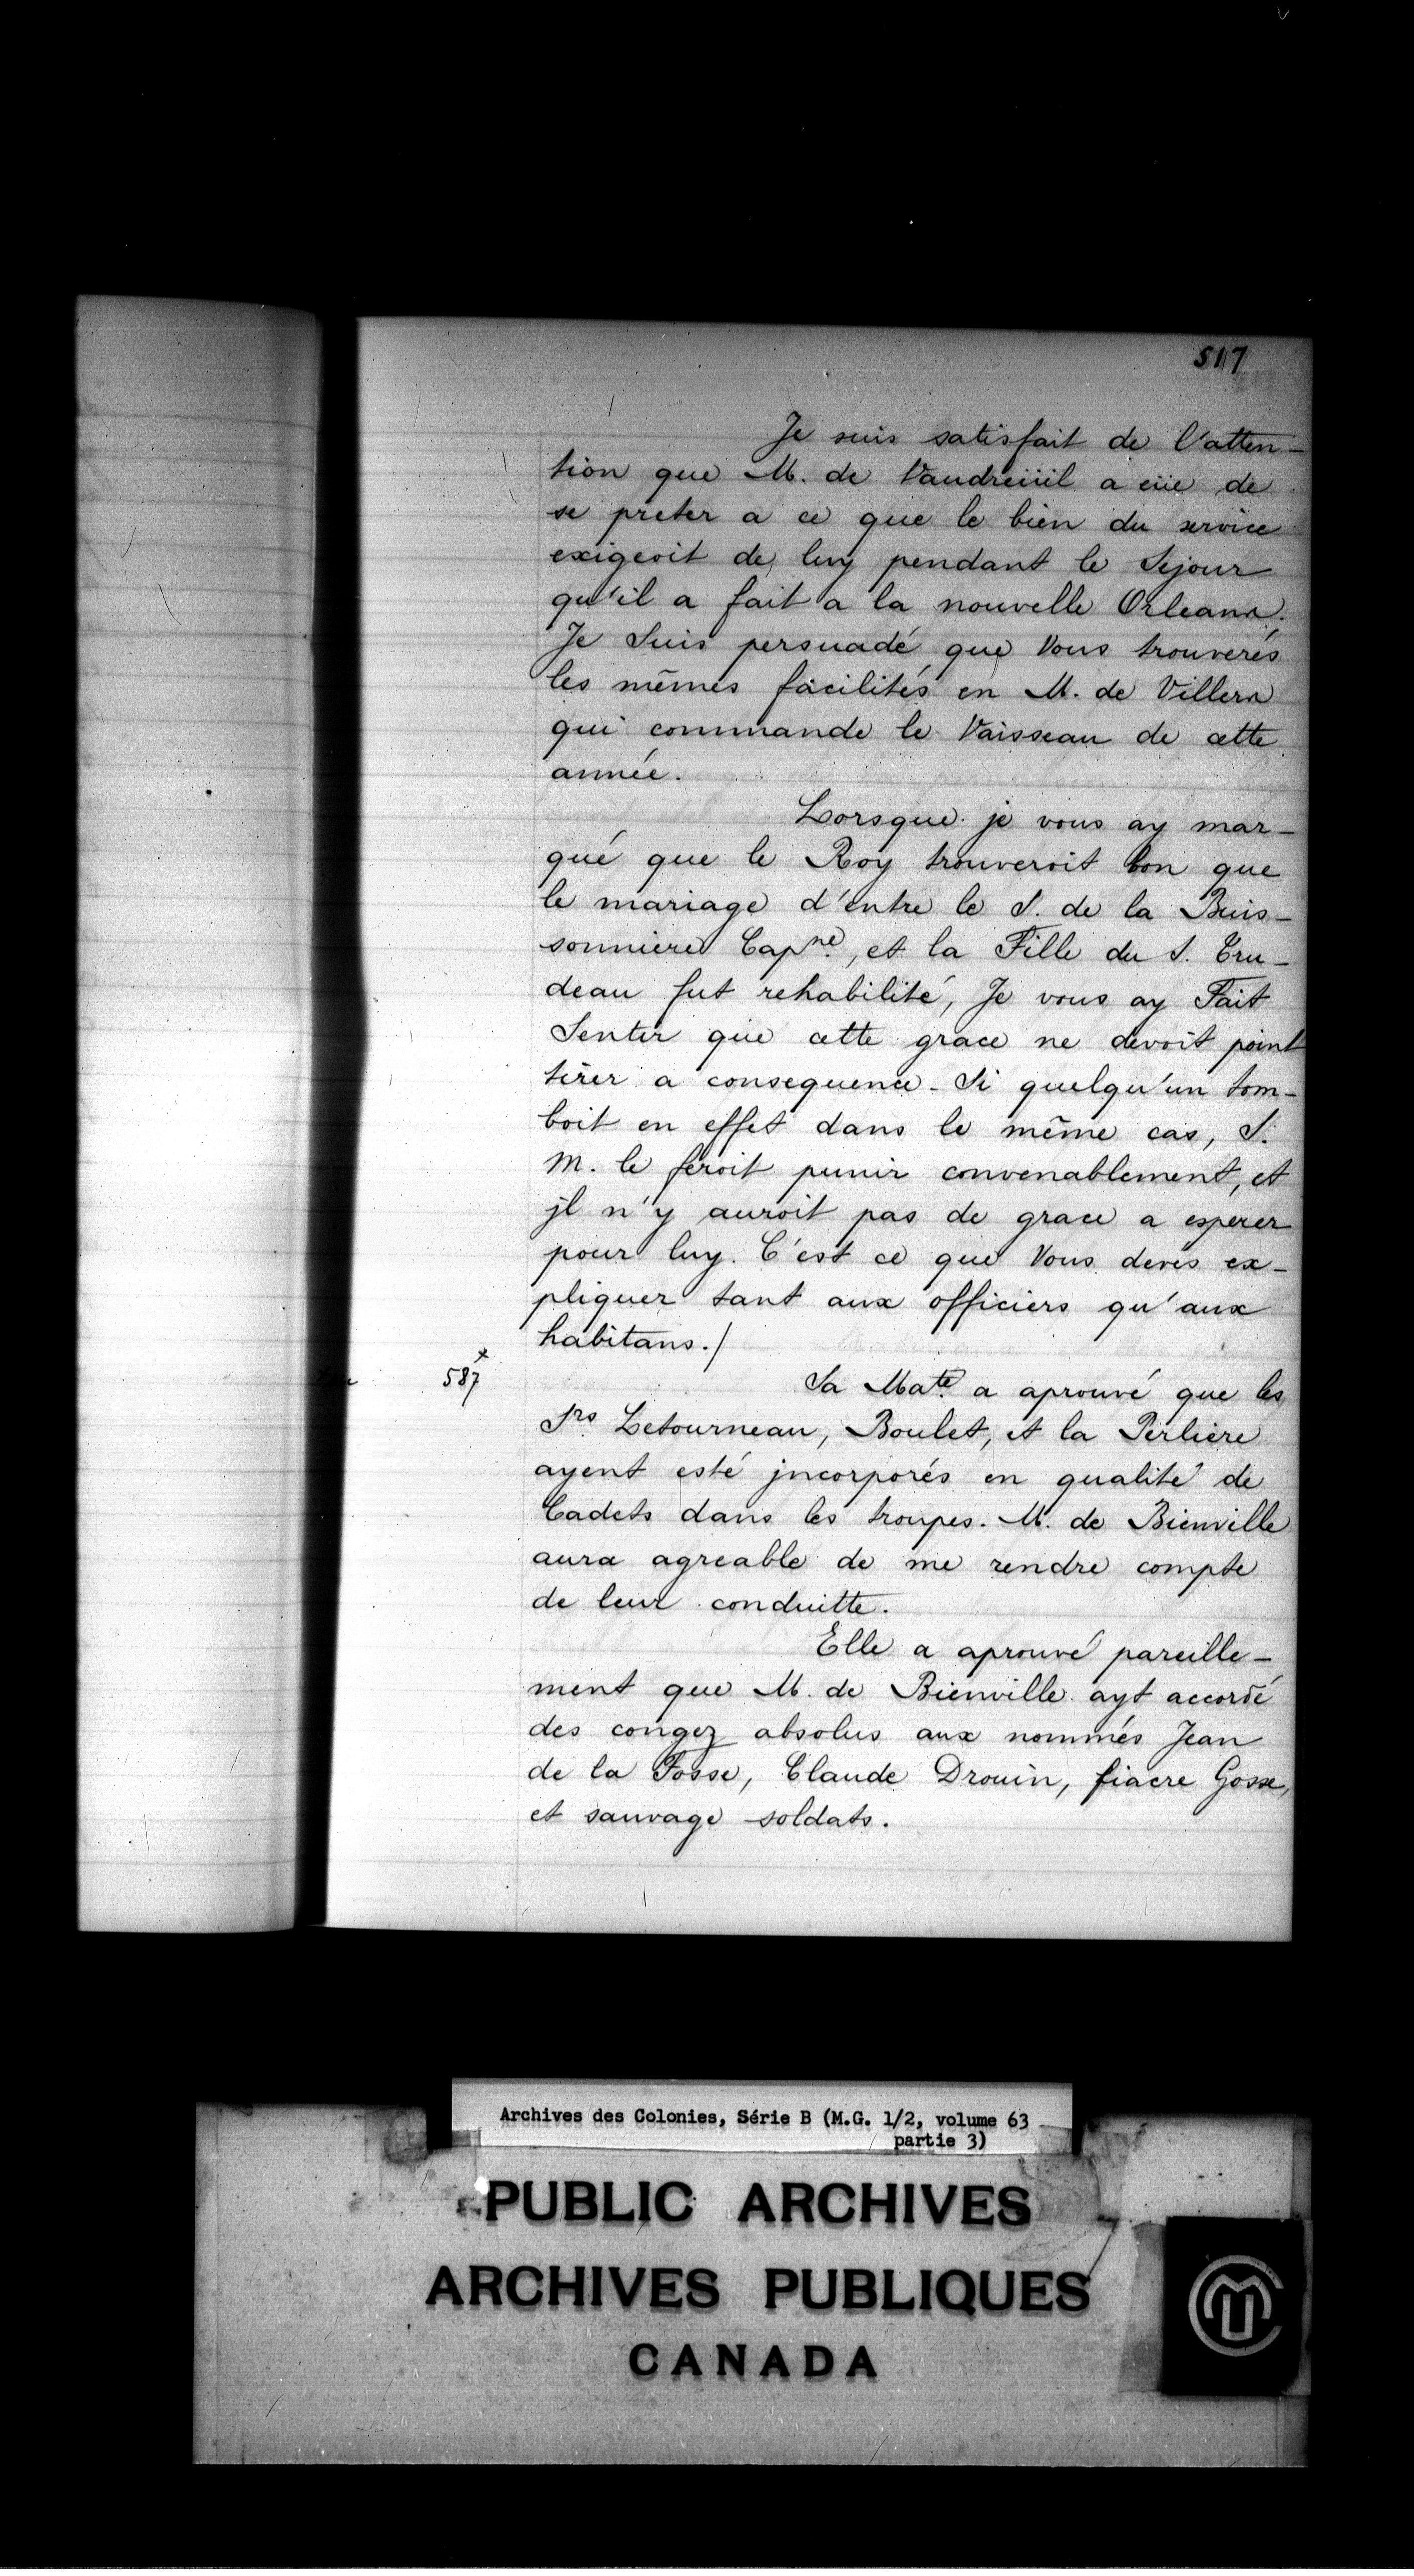 517
Je suis satisfait de l'atten-
tion que M. de Vaudreüil a eüe de
se preter a ce que le bien du service
exigeoit de luy pendant le Sejour
qu'il a fait a la nouvelle Orleans.
Je Suis persuadé que Vous trouverés
les mêmes facilités en M. de Villers
qui commande le Vaisseau de cette
année.
Lorsque je vous ay mar-
qué que le Roy trouveroit bon que
le mariage d'entre le S. de la Buis-
sonniere Capne., et la Fille du S. Tru-
deau fut rehabilité, Je vous ay Fait
Sentir que cette grace ne devoit point
tirer a consequence. Si quelqu'un tom-
boit en effet dans le même cas, S.
M. le feroit punir convenablement, et
jl n'y auroit pas de grace a esperer
pour luy. C'est ce que Vous devés ex-
pliquer tant aux officiers qu'aux
habitans./
587 x
Sa Mate. a aprouvé que les
Srs. Letourneau, Boulet, et la Perliere
ayent esté jncorporés en qualité de
Cadets dans les troupes. M. de Bienville
aura agreable de me rendre compte
de leur conduitte.
Elle a aprouvé pareille-
ment que M. de Bienville ayt accordé
des congez absolus aux nommés Jean
de la Fosse, Claude Drouin, fiacre Gosse,
et sauvage soldats.
Archives des Colonies, Série B (M.G. 1/2, volume 63
partie 3)
PUBLIC ARCHIVES
ARCHIVES PUBLIQUES
CANADA